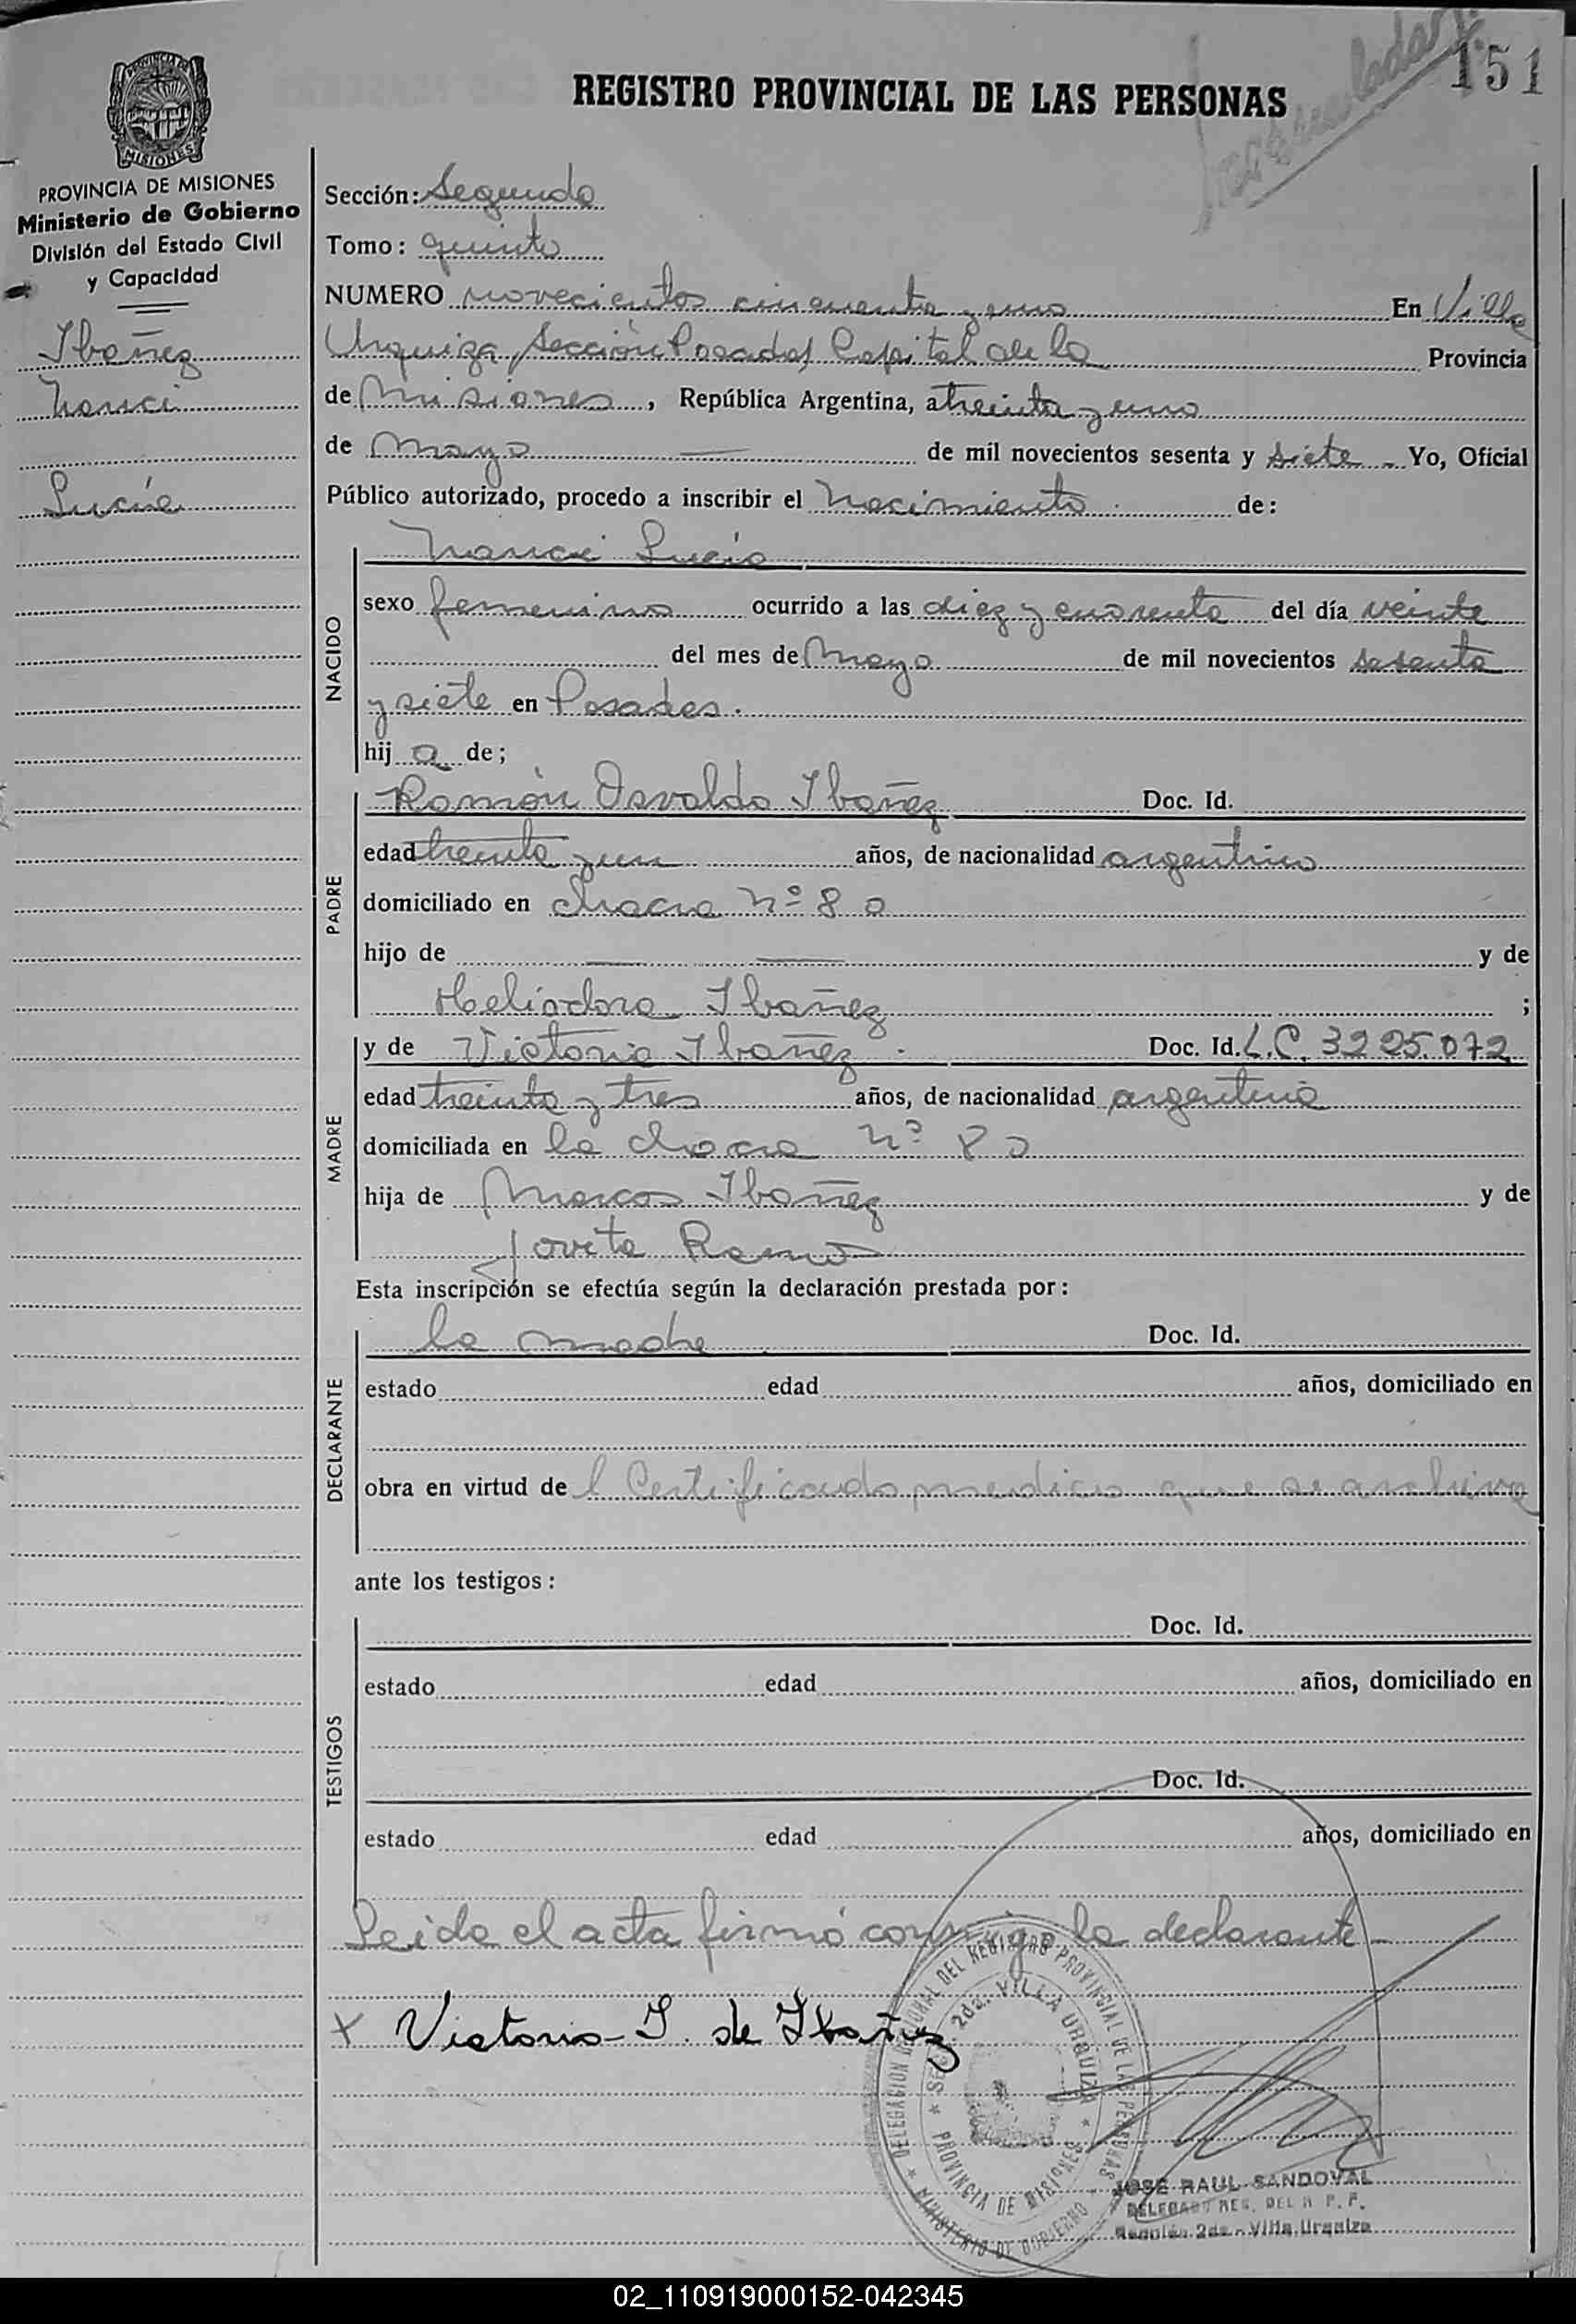 151
REGISTRO PROVINCIAL DE LAS PERSONAS
MISIONES
PROVINCIA DE MISIONES
Ministerio de Gobierno
División del Estado Civil
y Capacidad
Ibañez
Nanci
Lucía
Sección: Segunda
Tomo: quinto
NUMERO novecientos cincuenta y uno En Villa
Urquiza, Sección Posadas Capital de la Provincia
de Misiones, República Argentina, a treinta y uno
de Mayo — de mil novecientos sesenta y siete - Yo, Oficial
Público autorizado, procedo a inscribir el Nacimiento de:
NACIDO
Nanci Lucía
sexo femenino ocurrido a las diez y cuarenta del día veinte
del mes de Mayo de mil novecientos sesenta
y siete en Posadas.
hij a de;
PADRE
Ramón Osvaldo Ibañez Doc. Id.
edad treinta y un años, de nacionalidad argentino
domiciliado en chacra nº 80
hijo de — — y de
Heliodora Ibañez ;
MADRE
y de Victoria Ibañez. Doc. Id. L.C. 3225.072
edad treinta y tres años, de nacionalidad argentina
domiciliada en la chacra nº 80
hija de Marcos Ibañez y de
Jovita Ramos
Esta inscripción se efectúa según la declaración prestada por:
DECLARANTE
la madre Doc. Id.
estado edad años, domiciliado en
obra en virtud de l Certificado medico que se archiva
ante los testigos:
TESTIGOS
Doc. Id.
estado edad años, domiciliado en
Doc. Id.
estado edad años, domiciliado en
Leida el acta firmó conmigo la declarante -
x Victoria I. de Ibañez
DELEGACION REGIONAL DEL REGISTRO PROVINCIAL DE LAS PERSONAS
MINISTERIO DE GOBIERNO
2da. VILLA URQUIZA
PROVINCIA DE MISIONES
JOSE RAUL SANDOVAL
DELEGADO REG. DEL R. P. P.
Sección 2da. - Villa Urquiza
02_110919000152-042345